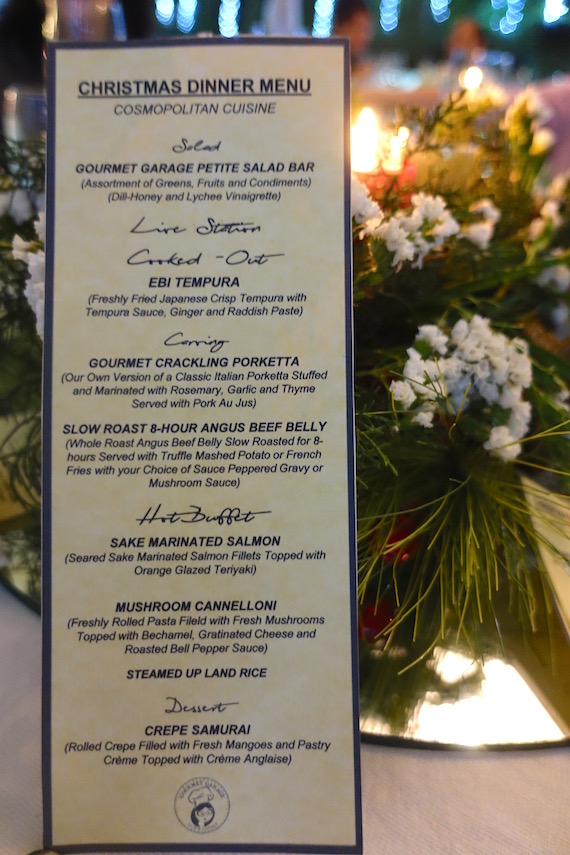 CHRISTMAS DINNER MENU
COSMOPOLITAN CUISINE
Salad
GOURMET GARAGE PETITE SALAD BAR
(Assortment of Greens, Fruits and Condiments)
(Dill-Honey and Lychee Vinaigrette)
Live Station
Cooked-Out
EBI TEMPURA
(Freshly Fried Japanese Crisp Tempura with
Tempura Sauce, Ginger and Raddish Paste)
Carving
GOURMET CRACKLING PORKETTA
(Our Own Version of a Classic Italian Porketta Stuffed
and Marinated with Rosemary, Garlic and Thyme
Served with Pork Au Jus)
SLOW ROAST 8-HOUR ANGUS BEEF BELLY
(Whole Roast Angus Beef Belly Slow Roasted for 8-
hours Served with Truffle Mashed Potato or French
Fries with your Choice of Sauce Peppered Gravy or
Mushroom Sauce)
Hot Buffet
SAKE MARINATED SALMON
(Seared Sake Marinated Salmon Fillets Topped with
Orange Glazed Teriyaki)
MUSHROOM CANNELLONI
(Freshly Rolled Pasta Fileld with Fresh Mushrooms
Topped with Bechamel, Gratinated Cheese and
Roasted Bell Pepper Sauce)
STEAMED UP LAND RICE
Dessert
CREPE SAMURAI
(Rolled Crepe Filled with Fresh Mangoes and Pastry
Crème Topped with Crème Anglaise)
GOURMET GARAGE